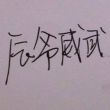 辰爷威武